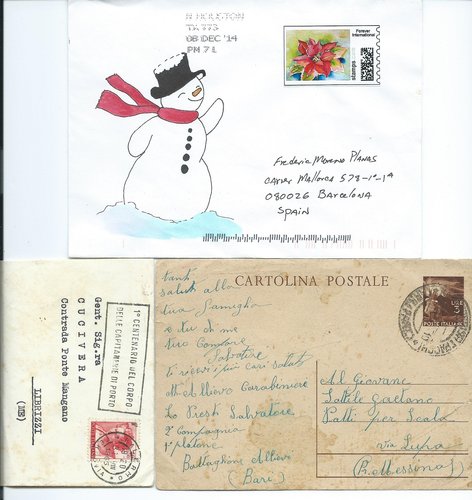 N HOUSTON
TX 773
08 DEC '14
PM 7 L
Forever
International
stamps
Frederic Moreno Planas
Carrer Mallorca 579-1º-1ª
080026 Barcelona
Spain
1º CENTENARIO DEL CORPO
DELLE CAPITANERIE DI PORTO
Gent. Sig.ra
CUCIVERA
Contrada Ponte Mangano
LIBRIZZI
(ME)
CARTOLINA POSTALE
LIRE
3
POSTE ITALIANE
tanti
saluti alla
tua famiglia
e tu di me
tuo
Salvatore
ti invio i più cari saluti
Mt. Allievo Carabiniere
Lo Presti Salvatore
2ª Compagnia
1º platone
Battaglione Allievi
(Bari)
Al Giovane
Gaetano
Patti per Scala
via
(P. Messina)